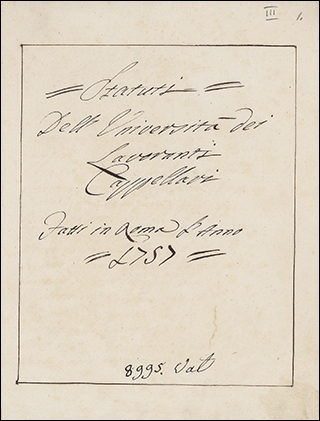 III 1.
= Statuti =
Dell' Università dei
Lavoranti
Cappellari
Fatti in Roma l'Anno
= 1757 =
8995. Vat